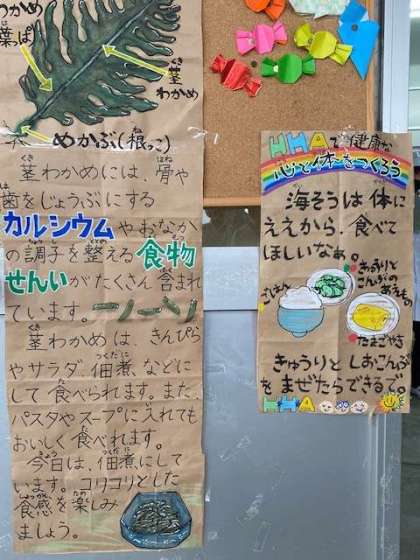 わかめ
(葉っぱ)
茎
わかめ
めかぶ(根っこ)
茎わかめには、骨や
歯をじょうぶにする
カルシウムやおなか
の調子を整える食物
せんいがたくさん含まれ
ています。
茎わかめは、きんぴら
やサラダ、佃煮などに
して食べられます。また、
パスタやスープに入れても
おいしく食べれます。
今日は、佃煮にして
います。コリコリとした
食感を楽しみ
ましょう。
HHAで健康な
心と体をつくろう
海そうは体に
ええから、食べて
ほしいなぁ。
きゅうりと
こんぶの
あえもの
ごはん
たまごやき
きゅうりとしおこんぶ
をまぜたらできるで。
HHA